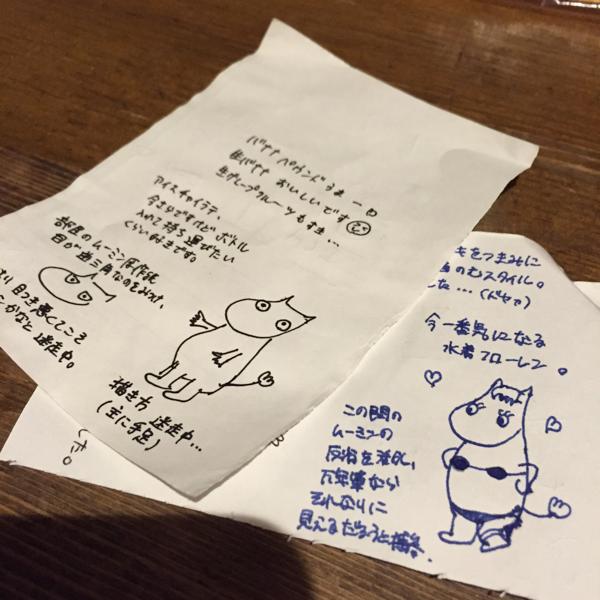 バナナ パウンドうまー
生バナナ おいしいです
生グレープフルーツもすき…
アイスチャイラテ、
今さらですけど ボトル
入れて持ち運びたい
くらい好きです。
部屋のムーミン原作読
目が三角なのをみつけ、
目つき悪くてこそ
かなと 迷走中。
描き方 迷走中…
(主に手足)
をつまみに
のむスタイル。
した…(ドヤァ)
今一番気になる
水着フローレン。
この間の
ムーミンの
反省を活かし、
万年筆なら
それなりに
見えるだろうと描く。
た。